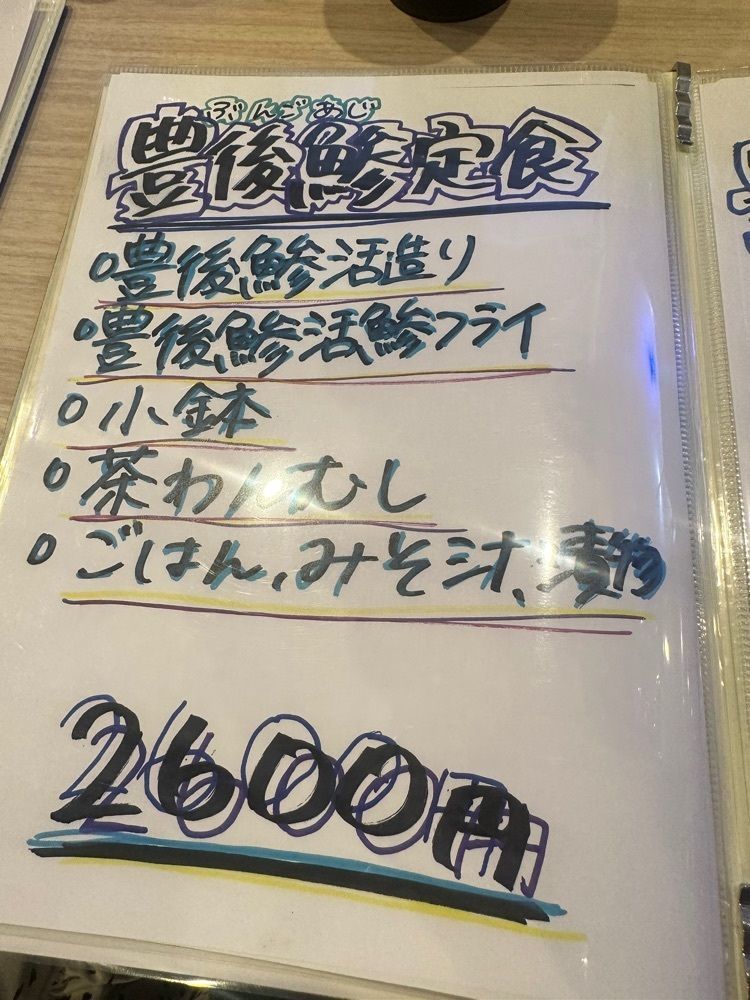 ぶんごあじ
豊後鯵定食
○豊後鯵活造り
○豊後鯵活鯵フライ
○小鉢
○茶わんむし
○ごはん、みそ汁、漬物
2600円